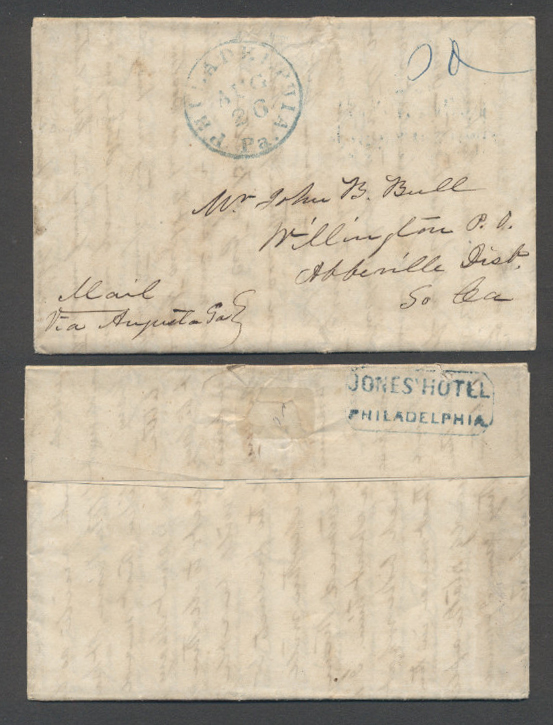 PHILADELPHIA Pa.
AUG
26
Mr John B. Bull
Willington P. O.
Abbeville Dist.
So Ca
Mail
Via Augusta Ga
JONES' HOTEL
PHILADELPHIA